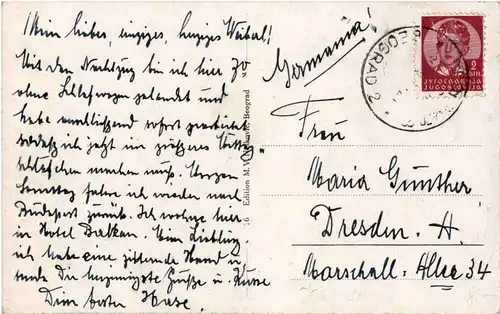 Mein liebes, einziges, herziges Weiberl!
Mit dem Nachtzug bin ich hier
ohne Schlafwagen gelandet und
habe anschliessend sofort gearbeitet
sodass ich jetzt ein größeres
schläfchen machen muß. Morgen
Sonntag fahre ich wieder nach
Budapest zurück. Ich wohne hier
im Hotel Balkan. Mein Liebling
ich habe eine zitternde Hand u
sende Dir herzinnigste Grüße u. Küsse
Dein Hase.
Edition M. Beograd
Germania!
BEOGRAD 2
2
ДИН.
ЈУГОСЛАВИЈА
JUGOSLAVIJA
Frau
Maria Günther
Dresden. A.
Marschall. Allee 34